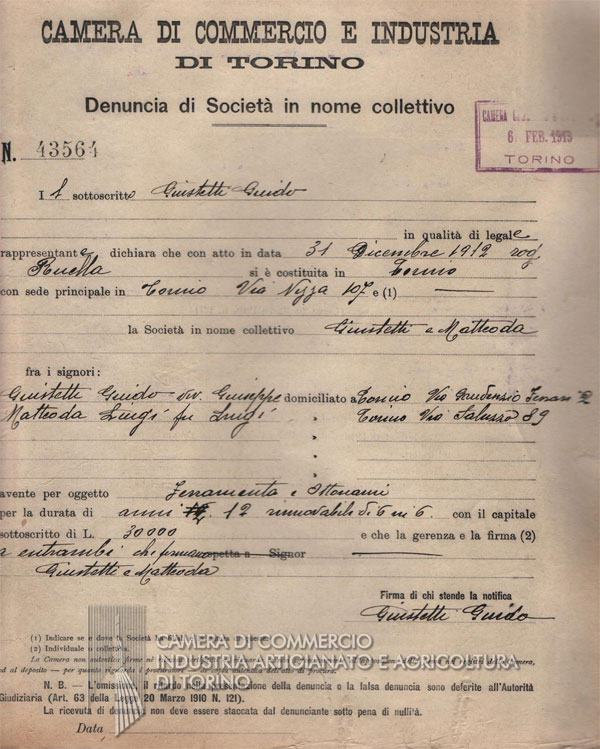 CAMERA DI COMMERCIO E INDUSTRIA
DI TORINO
Denuncia di Società in nome collettivo
CAMERA
6. FEB. 1913
TORINO
N. 43564
I l sottoscritto Giustetti Guido
in qualità di legale
rappresentante dichiara che con atto in data 31 Dicembre 1912 rog.
si è costituita in Torino
con sede principale in Torino Via Nizza 107 e (1)
la Società in nome collettivo Giustetti e Matteoda
fra i signori:
Giustetti Guido div. Giuseppe domiciliato a Torino Via Gaudenzio Ferrari 2
Matteoda Luigi fu Luigi " Torino Via Saluzzo 89
avente per oggetto Ferramenta e Ottonami
per la durata di anni 12 rinnovabile di 6 in 6 con il capitale
sottoscritto di L. 30000 e che la gerenza e la firma (2)
a entrambi che firmano spetta a Signor
Giustetti e Matteoda
Firma di chi stende la notifica
Giustetti Guido
(1) Indicare se e dove la Società ha
(2) Individuale o collettiva.
La Camera non autentica firme nè
CAMERA DI COMMERCIO
INDUSTRIA ARTIGIANATO E AGRICOLTURA
DI TORINO
N. B. - L'omissione, il ritardo nella presentazione della denuncia o la falsa denuncia sono deferite all'Autorità
Giudiziaria (Art. 63 della Legge 20 Marzo 1910 N. 121).
La ricevuta di denuncia non deve essere staccata dal denunciante sotto pena di nullità.
Data